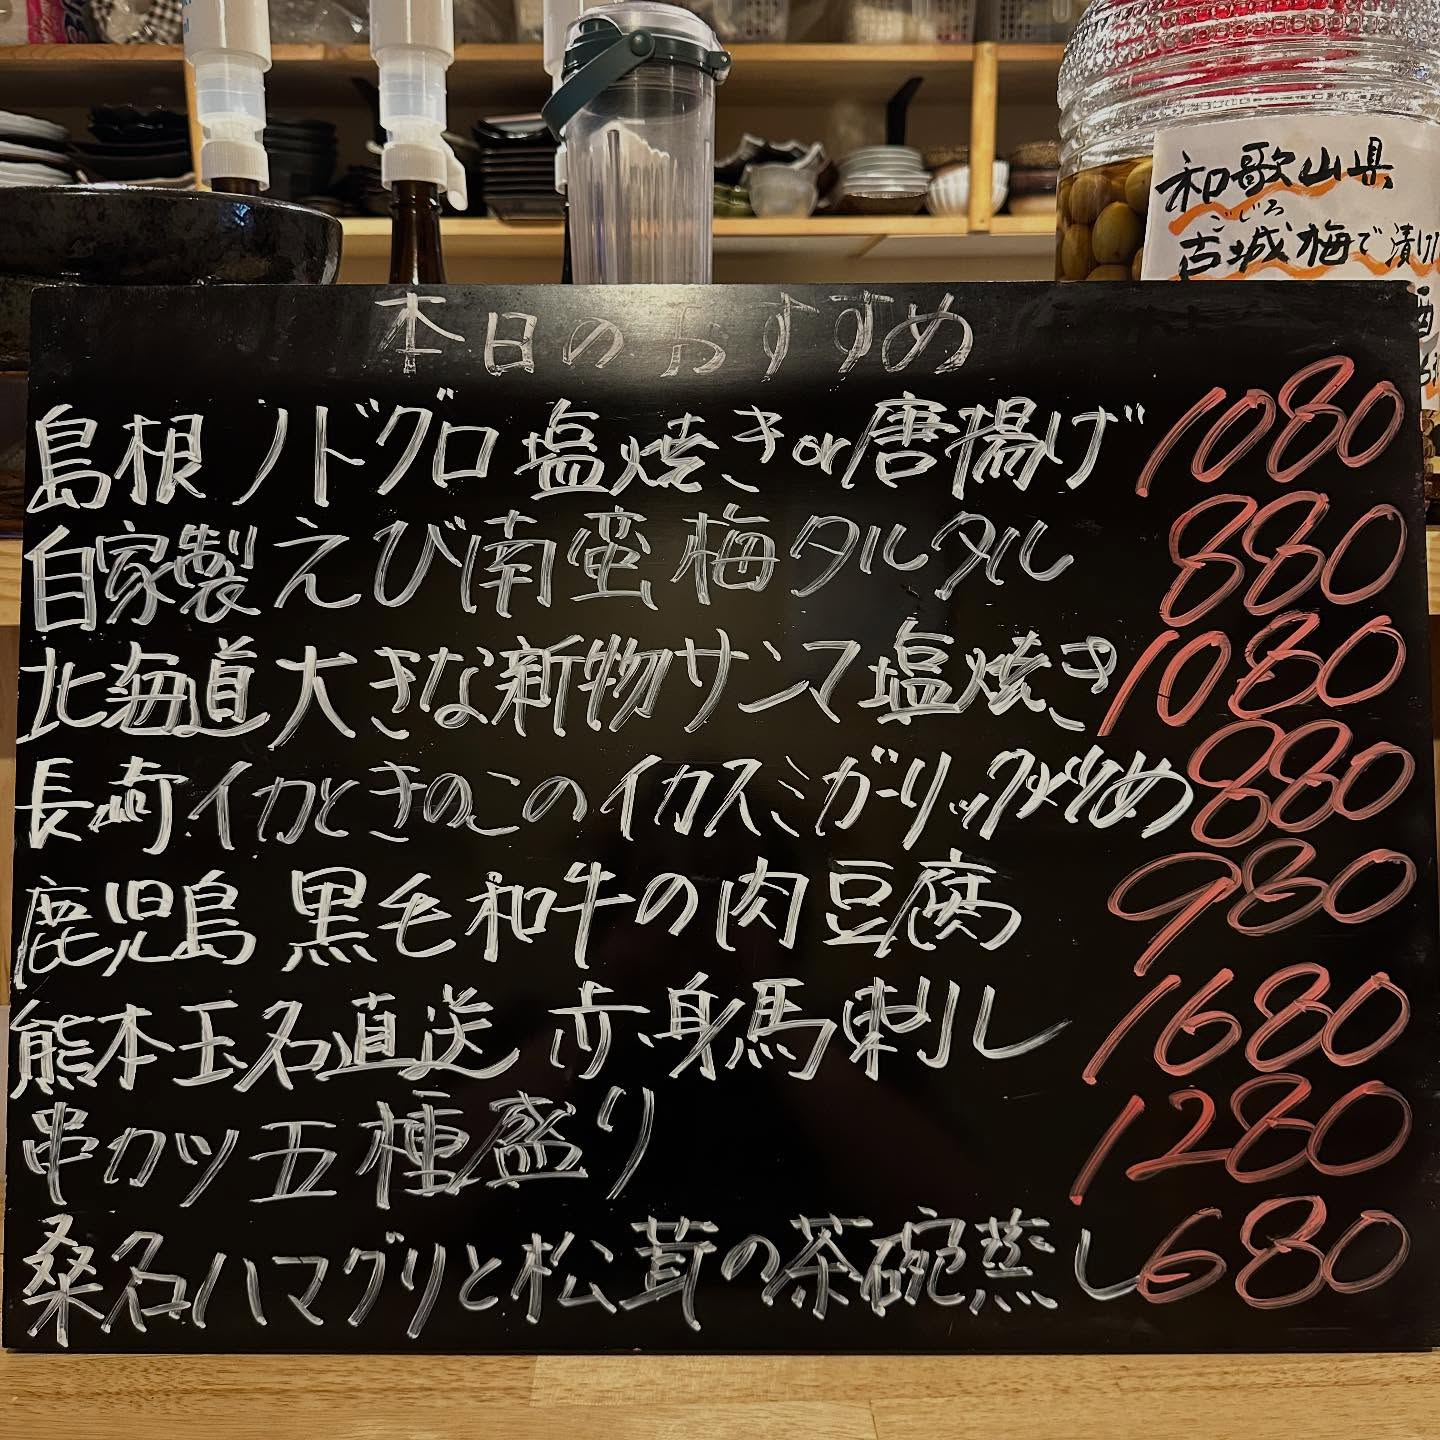 和歌山県
ごじろ
古城梅で漬け
酒
本日のおすすめ
島根ノドグロ塩焼きor唐揚げ 1080
自家製えび南蛮梅タルタル 880
北海道大きな新物サンマ塩焼き 1080
長崎イカときのこのイカスミガーリック炒め 880
鹿児島黒毛和牛の肉豆腐 980
熊本玉名直送 赤身馬刺し 1680
串カツ五種盛り 1280
桑名ハマグリと松茸の茶碗蒸し 680